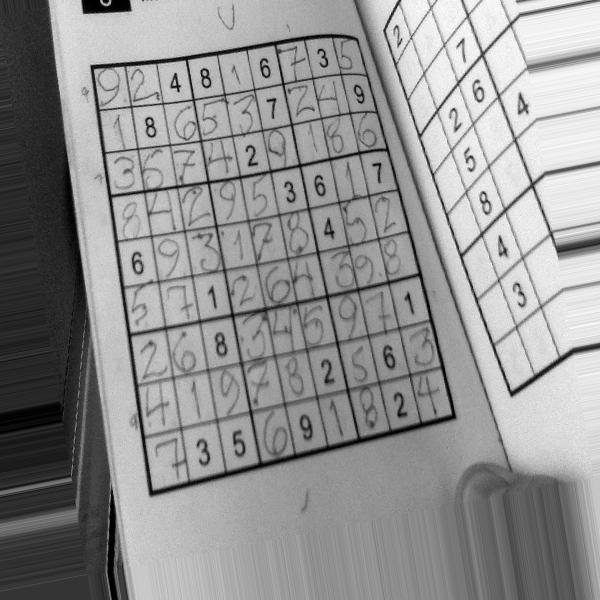 9 2 4 8 1 6 7 3 5
1 8 6 5 3 7 2 4 9
3 5 7 4 2 9 1 8 6
8 4 2 9 5 3 6 1 7
6 9 3 1 7 8 4 5 2
5 7 1 2 6 4 3 9 8
2 6 8 3 4 5 9 7 1
4 1 9 7 8 2 5 6 3
7 3 5 6 9 1 8 2 4
2
7
6
2
4
5
8
4
3